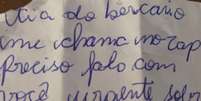 Tia do berçario
me chama no zap
preciso falo com
você urgente sobr